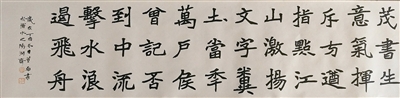 茂書生
意氣揮
斥方遒
指點江
山激揚
文字糞
土當年
萬戶侯
曾記否
到中流
擊水浪
遏飛舟